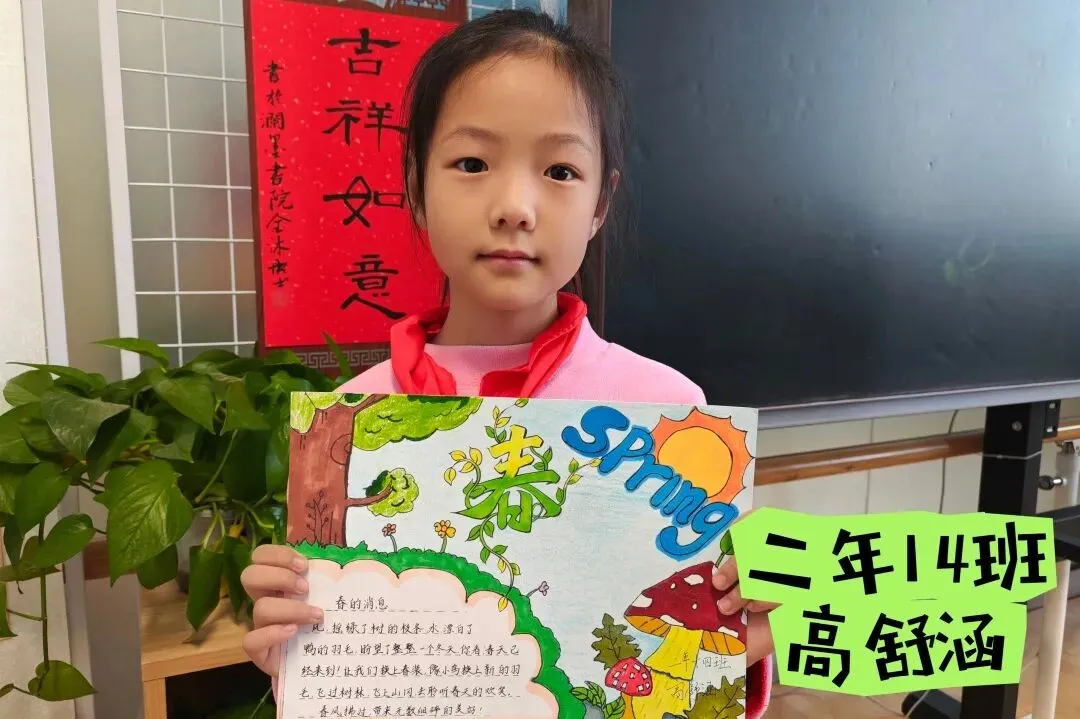 吉祥如意
春
Spring
春的消息
风,摇绿了树的枝条,水漂白了
鸭的羽毛,盼望了整整一个冬天,你看春天已
经来到!让我们换上春装,像小鸟换上新的羽
毛,飞过树林,飞上山冈,去聆听春天的欢笑。
春风拂过,带来无数细碎的美好!
年十四班
高舒涵
二年14班
高舒涵